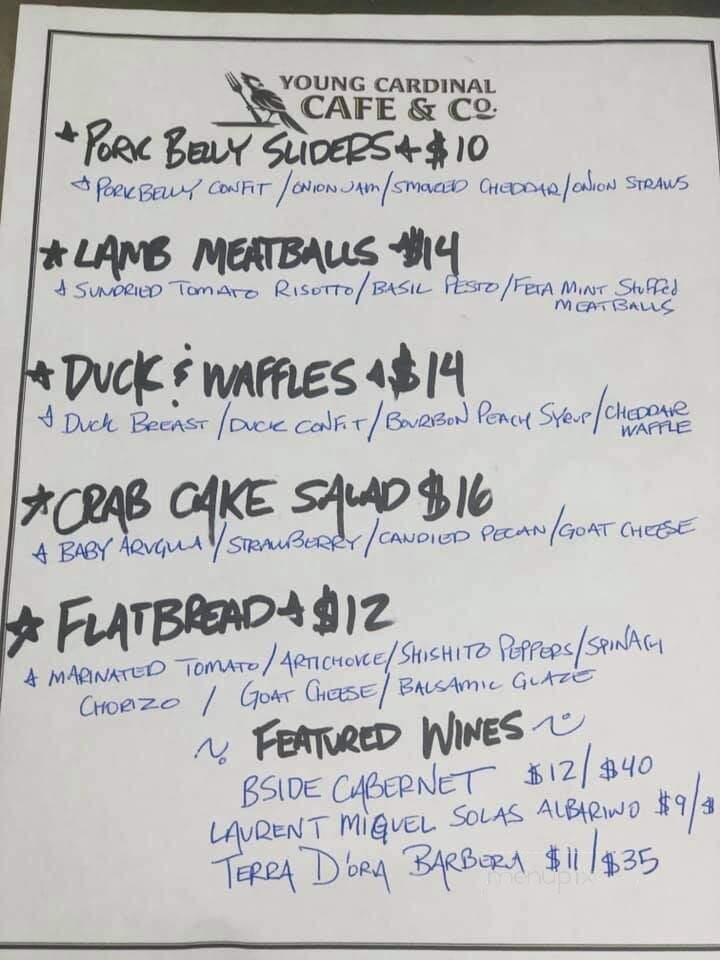 YOUNG CARDINAL
CAFE & CO.
PORK BELLY SLIDERS $10
PORK BELLY CONFIT / ONION JAM / SMOKED CHEDDAR / ONION STRAWS
LAMB MEATBALLS $14
SUNDRIED TOMATO RISOTTO / BASIL PESTO / FETA MINT Stuffed
MEATBALLS
DUCK & WAFFLES $14
DUCK BREAST / DUCK CONFIT / BOURBON PEACH SYRUP / CHEDDAR
WAFFLE
CRAB CAKE SALAD $16
BABY ARUGULA / STRAWBERRY / CANDIED PECAN / GOAT CHEESE
FLATBREAD $12
MARINATED TOMATO / ARTICHOKE / SHISHITO PEPPERS / SPINACH
CHORIZO / GOAT CHEESE / BALSAMIC GLAZE
FEATURED WINES
BSIDE CABERNET $12 / $40
LAURENT MIGUEL SOLAS ALBARINO $9 / $
TERRA D'ORA BARBERA $11 / $35
menupix